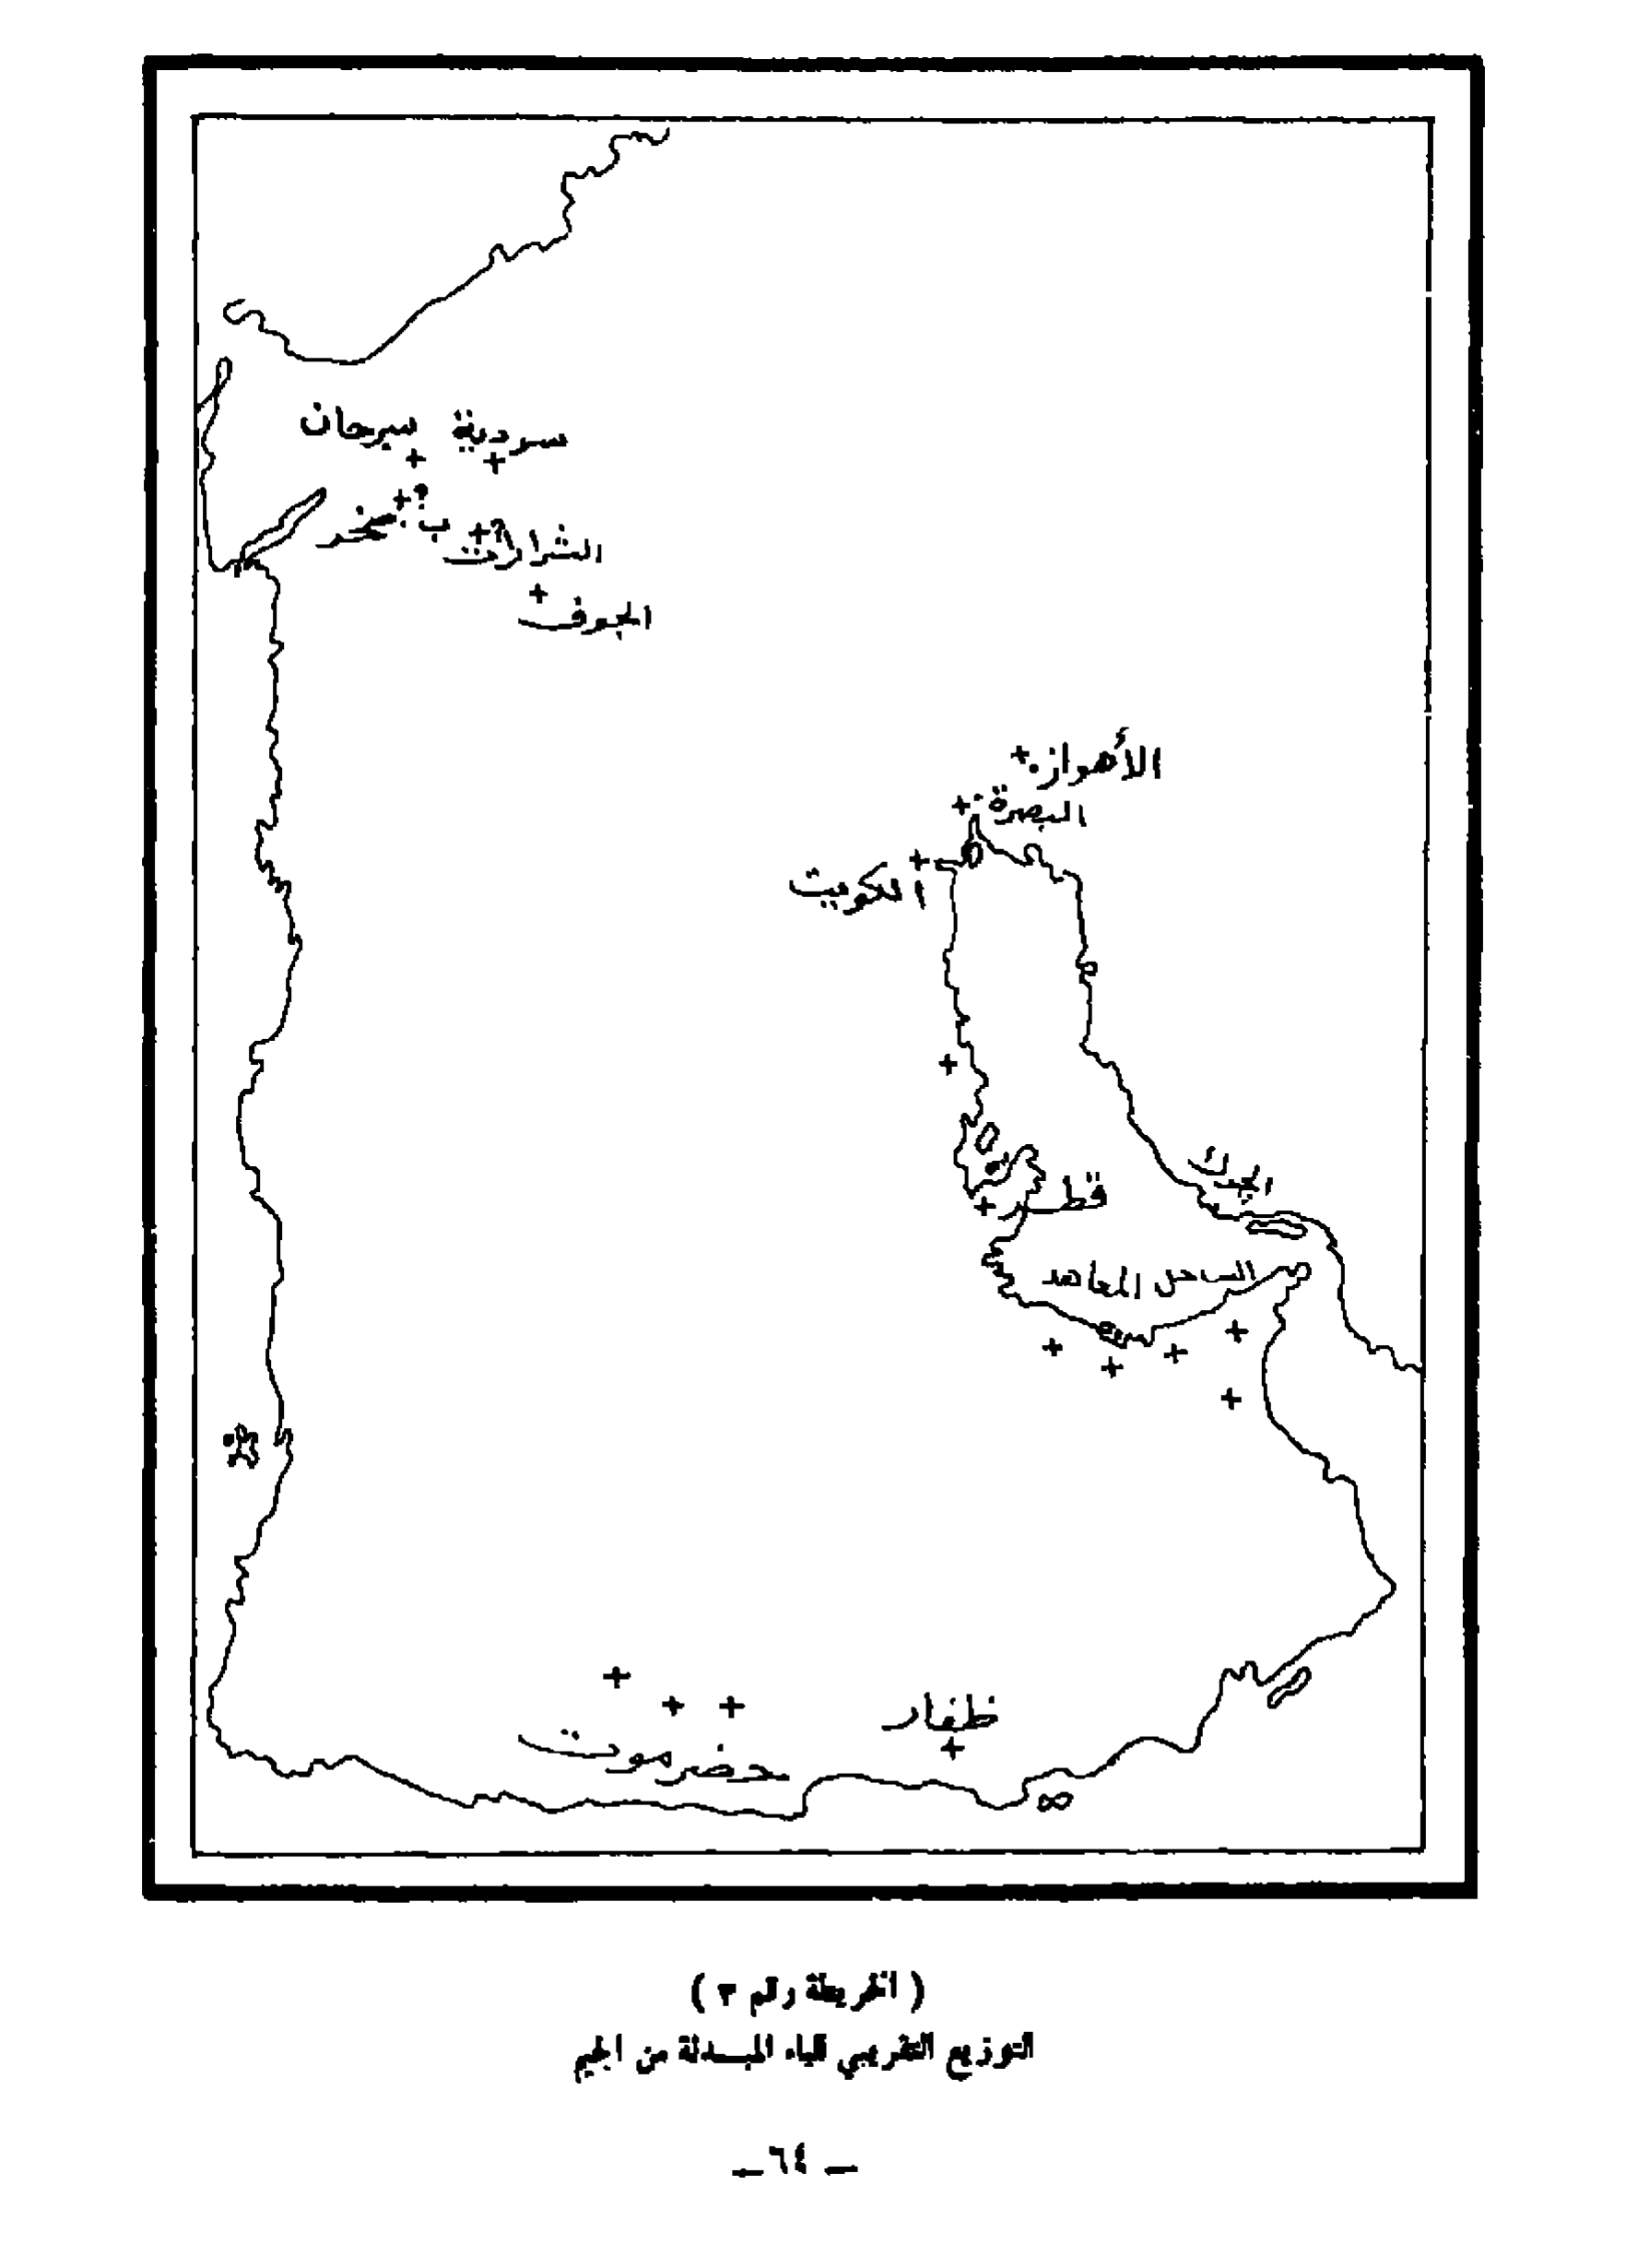 سردية سرحان
ب. صخر ؟
الشرارات ؟
الجوف
الأهواز
البصرة
الكويت
قطر
الساحل المعاهد
ظفار
حضرموت
( الخريطة رقم ٣ )
التوزيع التقريبي للياء المبدلة من الجيم
ــ ٦٤ ــ